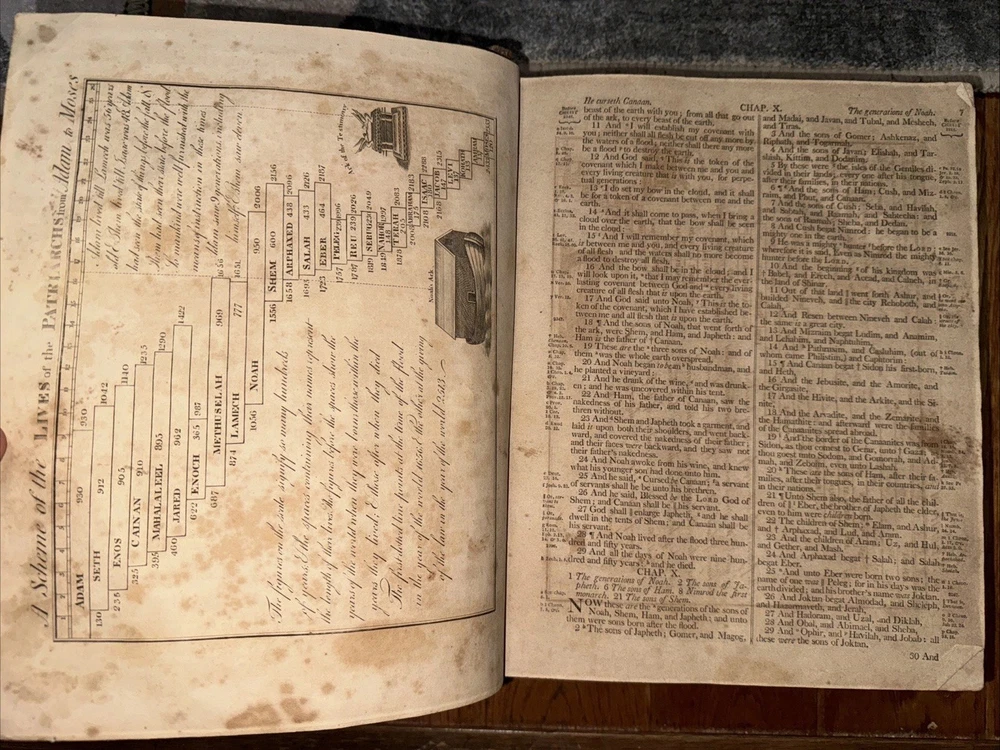 A Scheme of the LIVES of the PATRIARCHS from Adam to Moses
ADAM 930 930
130 SETH 912 1042
235 ENOS 905 1140
325 CAINAN 910 1235
395 MAHALALEEL 895 1290
460 JARED 962 1422
622 ENOCH 365 987
687 METHUSELAH 969 1656
874 LAMECH 777 1651
1056 NOAH 950 2006
1556 SHEM 600 2156
1658 ARPHAXED 438 2096
1693 SALAH 433 2126
1723 EBER 464 2187
1757 PELEG 239 1996
1787 REU 239 2026
1819 SERUG 230 2049
TERAH
ISAAC
JACOB
LEVI
Noahs Ark
Adam lived till Lamech was 56 years
old & Shem lived till
had seen the state of things before the fall &
Shem had seen their state before the flood
So mankind were well furnished with the
necessary instruction in these times
The figures on the scale signify so many hundreds
of years & the spaces containing their names represent
the length of their lives, the figures before the spaces shew the
years of the world when they were born; those within the
years they lived; & those after when they died
The first dotted line points at the time of the flood
in the year of the world 1656, the other at the giving
of the law in the year of the world 2513.
He curseth Canaan.
CHAP. X.
The generations of Noah. 7
beast of the earth with you; from all that go out
of the ark, to every beast of the earth.
11 And I will establish my covenant with
you; neither shall all flesh be cut off any more by
the waters of a flood; neither shall there any more
be a flood to destroy the earth.
12 And God said, This is the token of the
covenant which I make between me and you and
every living creature that is with you, for perpetual
generations:
13 I do set my bow in the cloud, and it shall
be for a token of a covenant between me and the
earth.
14 And it shall come to pass, when I bring a
cloud over the earth, that the bow shall be seen
in the cloud:
15 And I will remember my covenant, which
is between me and you, and every living creature
of all flesh and the waters shall no more become
a flood to destroy all flesh.
16 And the bow shall be in the cloud; and I
will look upon it, that I may remember the everlasting
covenant between God and every living
creature of all flesh that is upon the earth.
17 And God said unto Noah, This is the token
of the covenant, which I have established between
me and all flesh that is upon the earth.
18 ¶ And the sons of Noah, that went forth of
the ark, were Shem, and Ham, and Japheth: and
Ham is the father of Canaan.
19 These are the three sons of Noah: and of
them was the whole earth overspread.
20 And Noah began to be an husbandman, and
he planted a vineyard:
21 And he drank of the wine, and was drunken;
and he was uncovered within his tent.
22 And Ham, the father of Canaan, saw the
nakedness of his father, and told his two brethren
without.
23 And Shem and Japheth took a garment, and
laid it upon both their shoulders, and went backward,
and covered the nakedness of their father;
and their faces were backward, and they saw not
their father's nakedness.
24 And Noah awoke from his wine, and knew
what his younger son had done unto him.
25 And he said, Cursed be Canaan; a servant
of servants shall he be unto his brethren.
26 And he said, Blessed be the LORD God of
Shem; and Canaan shall be his servant.
27 God shall enlarge Japheth, and he shall
dwell in the tents of Shem; and Canaan shall be
his servant.
28 ¶ And Noah lived after the flood three hundred
and fifty years.
29 And all the days of Noah were nine hundred
and fifty years: and he died.
CHAP. X.
1 The generations of Noah. 2 The sons of Japheth.
6 The sons of Ham. 8 Nimrod the first
monarch. 21 The sons of Shem.
NOW these are the generations of the sons of
Noah, Shem, Ham, and Japheth: and unto
them were sons born after the flood.
2 The sons of Japheth; Gomer, and Magog,
and Madai, and Javan, and Tubal, and Meshech,
and Tiras.
3 And the sons of Gomer; Ashkenaz, and
Riphath, and Togarmah.
4 And the sons of Javan; Elishah, and Tarshish,
Kittim, and Dodanim.
5 By these were the isles of the Gentiles divided
in their lands; every one after his tongue,
after their families, in their nations.
6 ¶ And the sons of Ham; Cush, and Mizraim,
and Phut, and Canaan.
7 And the sons of Cush; Seba, and Havilah,
and Sabtah, and Raamah, and Sabtecha: and
the sons of Raamah; Sheba, and Dedan.
8 And Cush begat Nimrod: he began to be a
mighty one in the earth.
9 He was a mighty hunter before the LORD:
wherefore it is said, Even as Nimrod the mighty
hunter before the LORD.
10 And the beginning of his kingdom was
Babel, and Erech, and Accad, and Calneh, in
the land of Shinar.
11 Out of that land went forth Ashur, and
builded Nineveh, and the city Rehoboth, and
Calah,
12 And Resen between Nineveh and Calah:
the same is a great city.
13 And Mizraim begat Ludim, and Anamim,
and Lehabim, and Naphtuhim,
14 And Pathrusim, and Casluhim, (out of
whom came Philistim,) and Caphtorim:
15 ¶ And Canaan begat Sidon his first-born,
and Heth,
16 And the Jebusite, and the Amorite, and
the Girgasite,
17 And the Hivite, and the Arkite, and the Sinite,
18 And the Arvadite, and the Zemarite, and
the Hamathite: and afterward were the families
of the Canaanites spread abroad.
19 And the border of the Canaanites was from
Sidon, as thou comest to Gerar, unto Gaza;
thou goest unto Sodom, and Gomorrah, and Admah,
and Zeboim, even unto Lashah.
20 These are the sons of Ham, after their families,
after their tongues, in their countries, and
in their nations.
21 ¶ Unto Shem also, the father of all the children
of Eber, the brother of Japheth the elder,
even to him were children born.
22 The children of Shem; Elam, and Ashur,
and Arphaxad, and Lud, and Aram.
23 And the children of Aram; Uz, and Hul,
and Gether, and Mash.
24 And Arphaxad begat Salah; and Salah
begat Eber.
25 And unto Eber were born two sons; the
name of one was Peleg; for in his days was the
earth divided; and his brother's name was Joktan.
26 And Joktan begat Almodad, and Sheleph,
and Hazarmaveth, and Jerah,
27 And Hadoram, and Uzal, and Diklah,
28 And Obal, and Abimael, and Sheba,
29 And Ophir, and Havilah, and Jobab: all
these were the sons of Joktan.
30 And